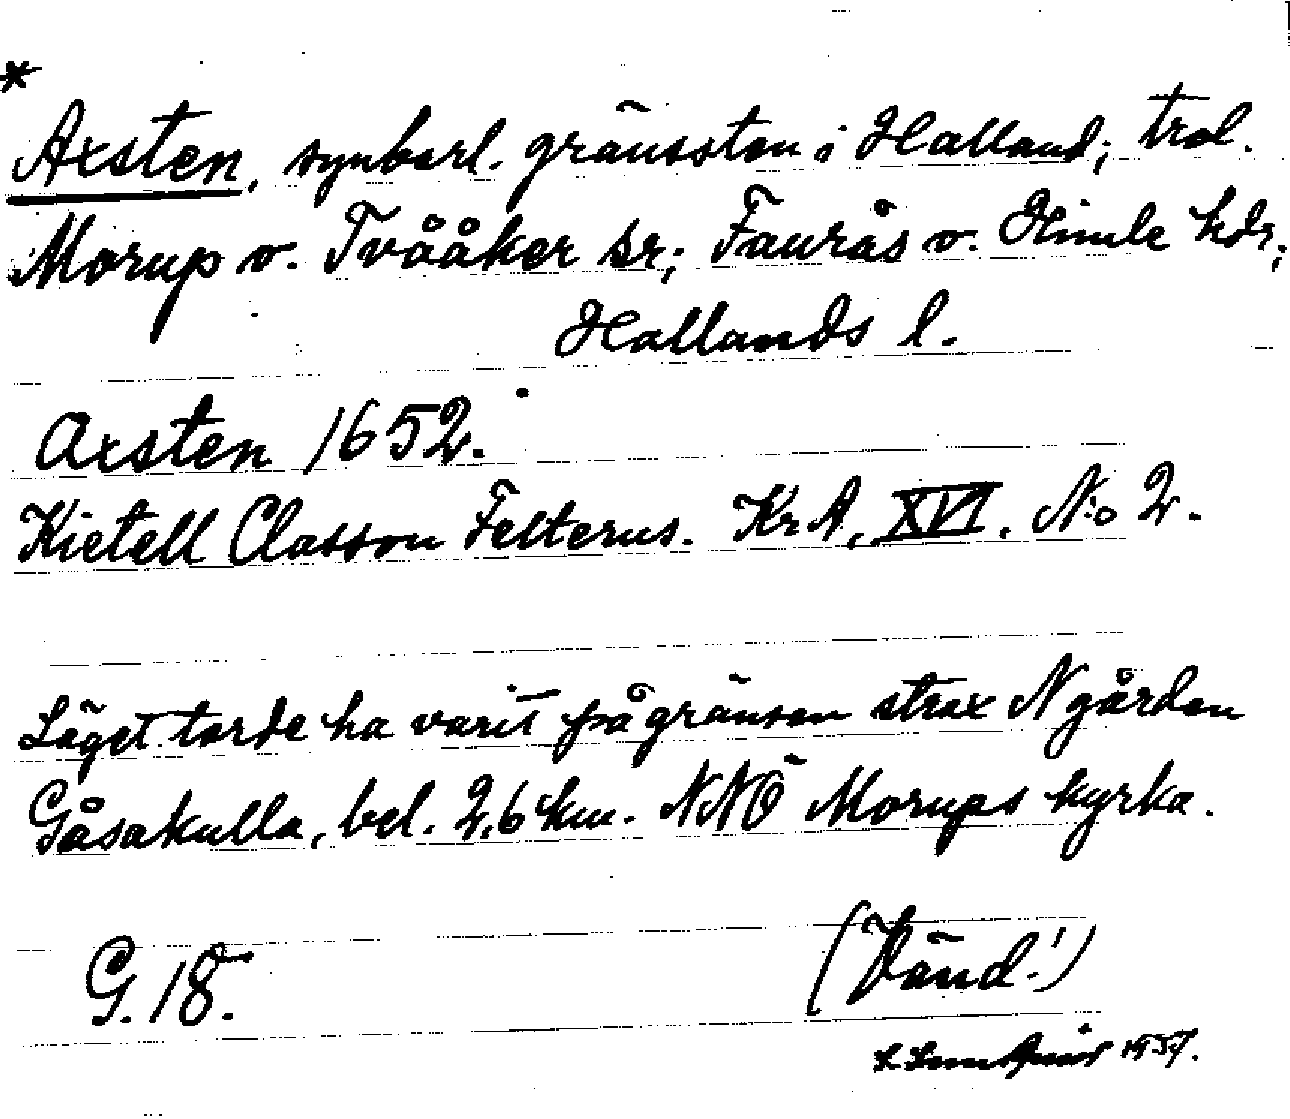 *
Axsten, synbarl. gränssten i Halland; trol.
Morup o. Tvååker sr; Faurås o. Himle hdr;
Hallands l.
Axsten 1652.
Kietell Classon Felterus. Kr A, XVI. N:o 2.
Läget torde ha varit på gränsen strax N gården
Gåsakulla, bel. 2,6 km. NNÖ Morups kyrka.
G. 18.
(Vänd!)
1937.